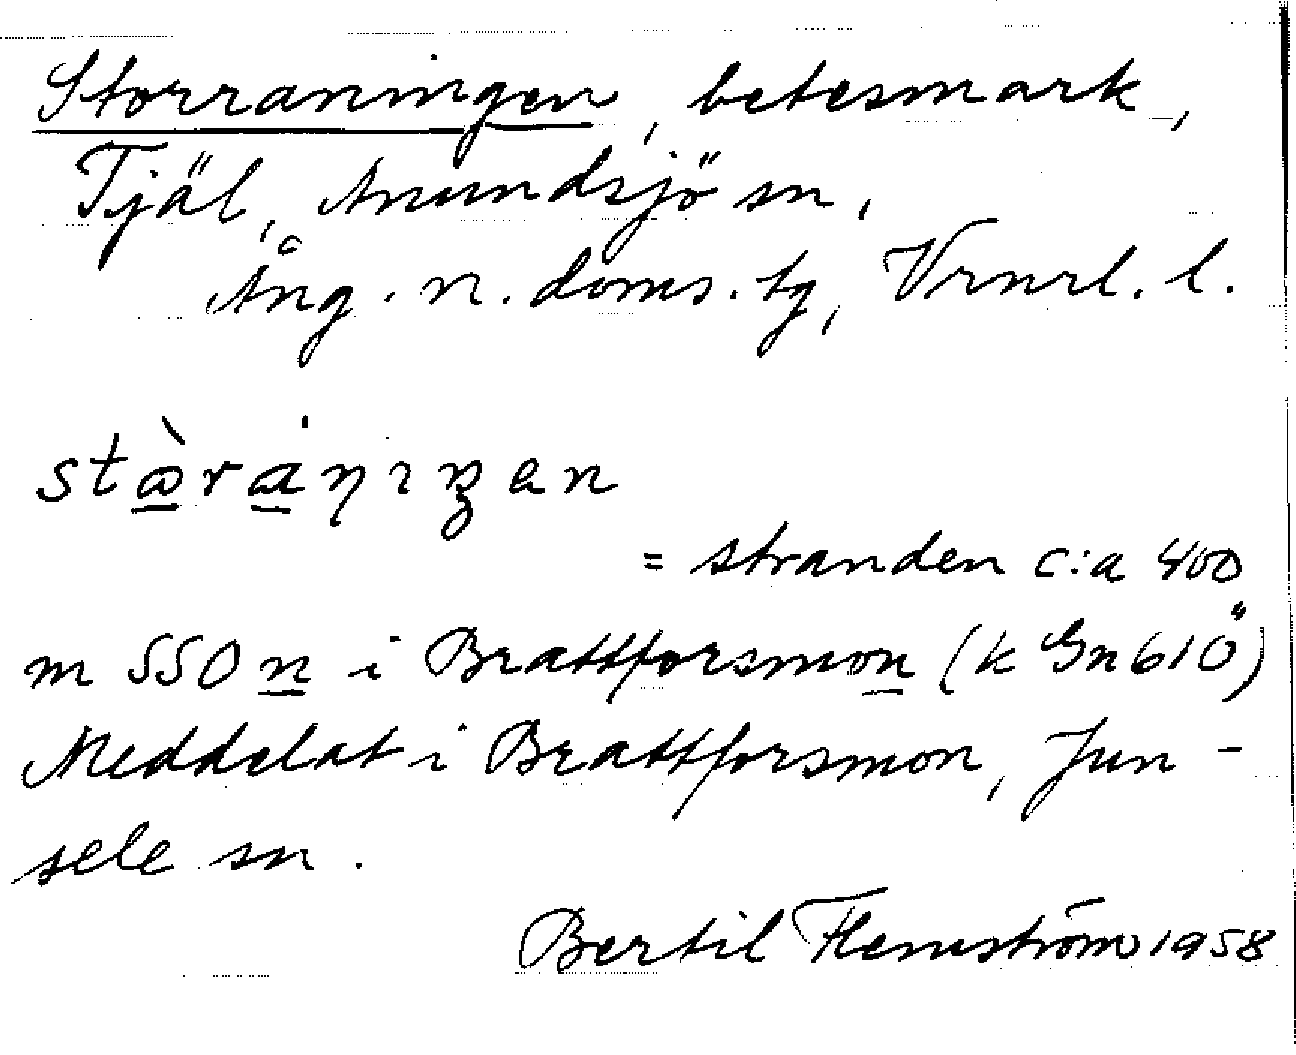 Storraningen, betesmark,
Tjäl, Anundsjö sn,
Ång. n. doms. tg, Vrnrl. l.
= stranden c:a 400
m SSO n i Brattforsmon (k Gn610Ö)
Meddelat i Brattforsmon, Jun-
sele sn.
Bertil Flemström 1958